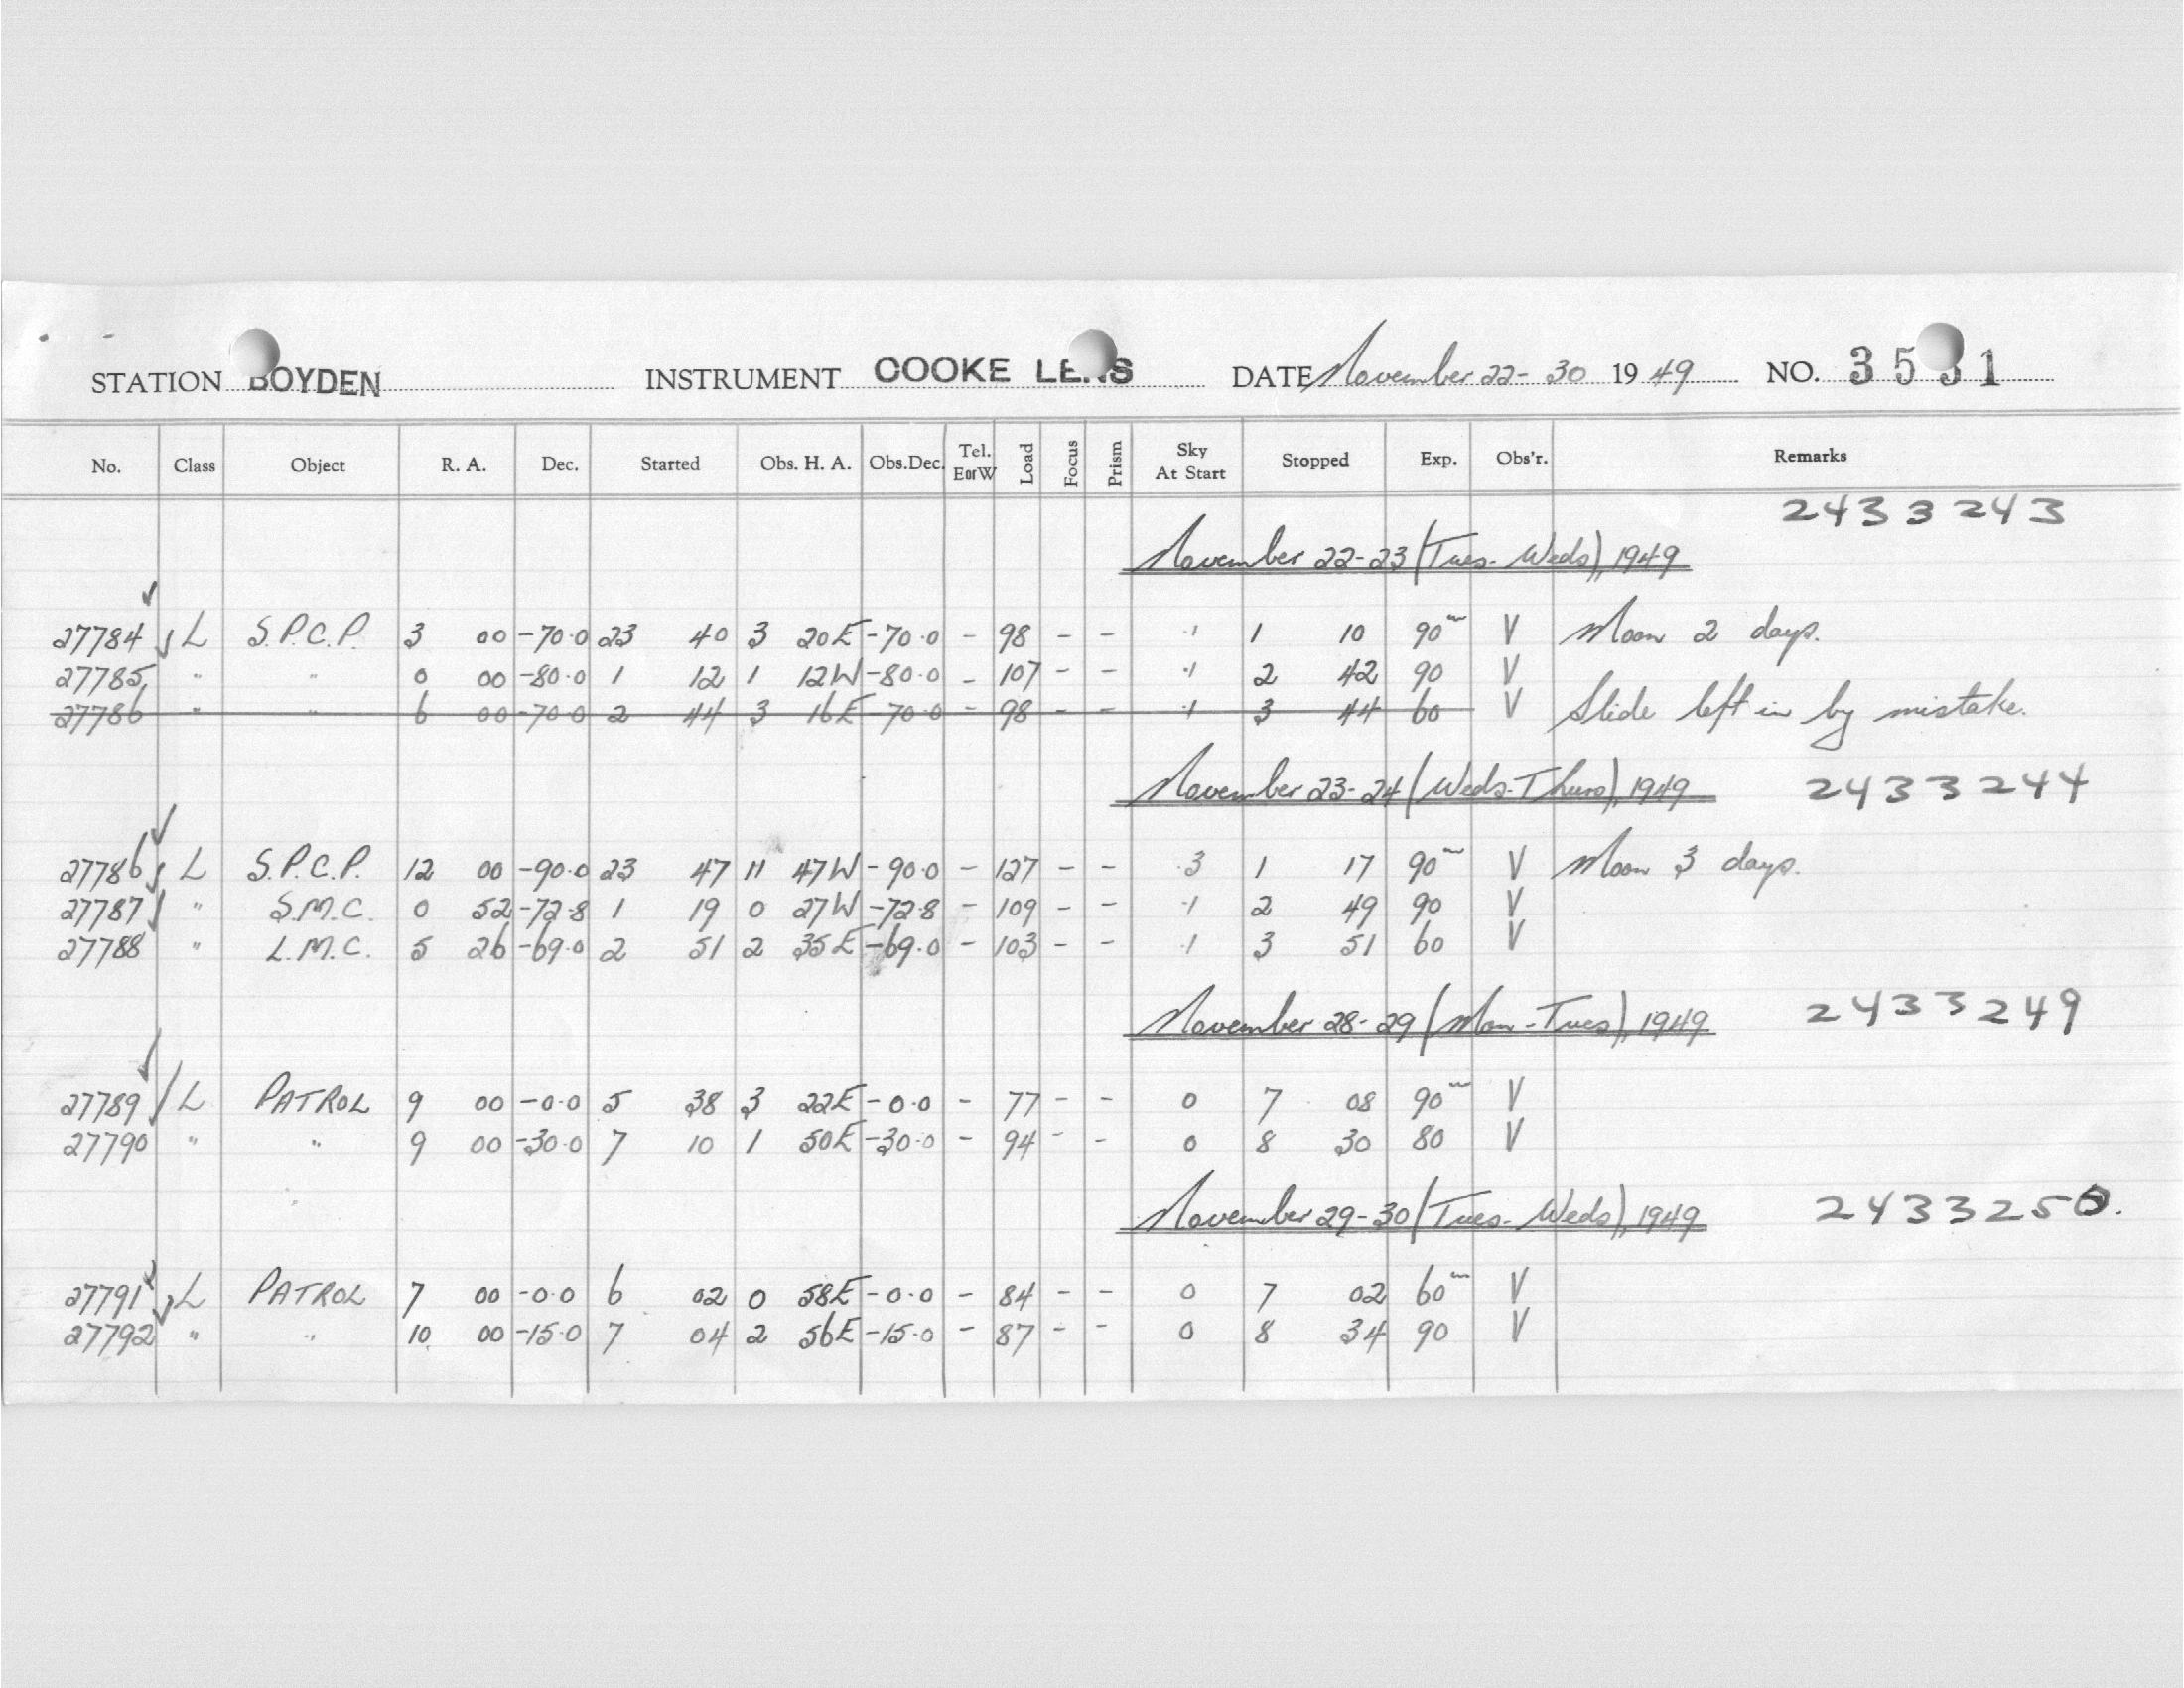 STATION BOYDEN INSTRUMENT COOKE LENS DATE November 22-30 1949 NO. 3531
No. Class Object R. A. Dec. Started Obs. H. A. Obs.Dec. Tel. EorW Load Focus Prism Sky At Start Stopped Exp. Obs'r. Remarks
2433243
November 22-23 (Tues-Weds), 1949
27784 L S.P.C.P. 3 00 -70.0 23 40 3 20E -70.0 - 98 - - .1 1 10 90m V Moon 2 days.
27785 " " 0 00 -80.0 1 12 1 12W -80.0 - 107 - - .1 2 42 90 V
27786 " " 6 00 -70.0 2 44 3 16E -70.0 - 98 - - .1 3 44 60 V Slide left in by mistake.
November 23-24 (Weds-Thurs), 1949 2433244
27786 L S.P.C.P. 12 00 -90.0 23 47 11 47W -90.0 - 127 - - .3 1 17 90m V Moon 3 days.
27787 " S.M.C. 0 52 -72.8 1 19 0 27W -72.8 - 109 - - .1 2 49 90 V
27788 " L.M.C. 5 26 -69.0 2 51 2 35E -69.0 - 103 - - .1 3 51 60 V
November 28-29 (Mon-Tues), 1949 2433249
27789 L PATROL 9 00 -0.0 5 38 3 22E -0.0 - 77 - - 0 7 08 90m V
27790 " " 9 00 -30.0 7 10 1 50E -30.0 - 94 - - 0 8 30 80 V
November 29-30 (Tues-Weds), 1949 2433250.
27791 L PATROL 7 00 -0.0 6 02 0 58E -0.0 - 84 - - 0 7 02 60m V
27792 " " 10 00 -15.0 7 04 2 56E -15.0 - 87 - - 0 8 34 90 V